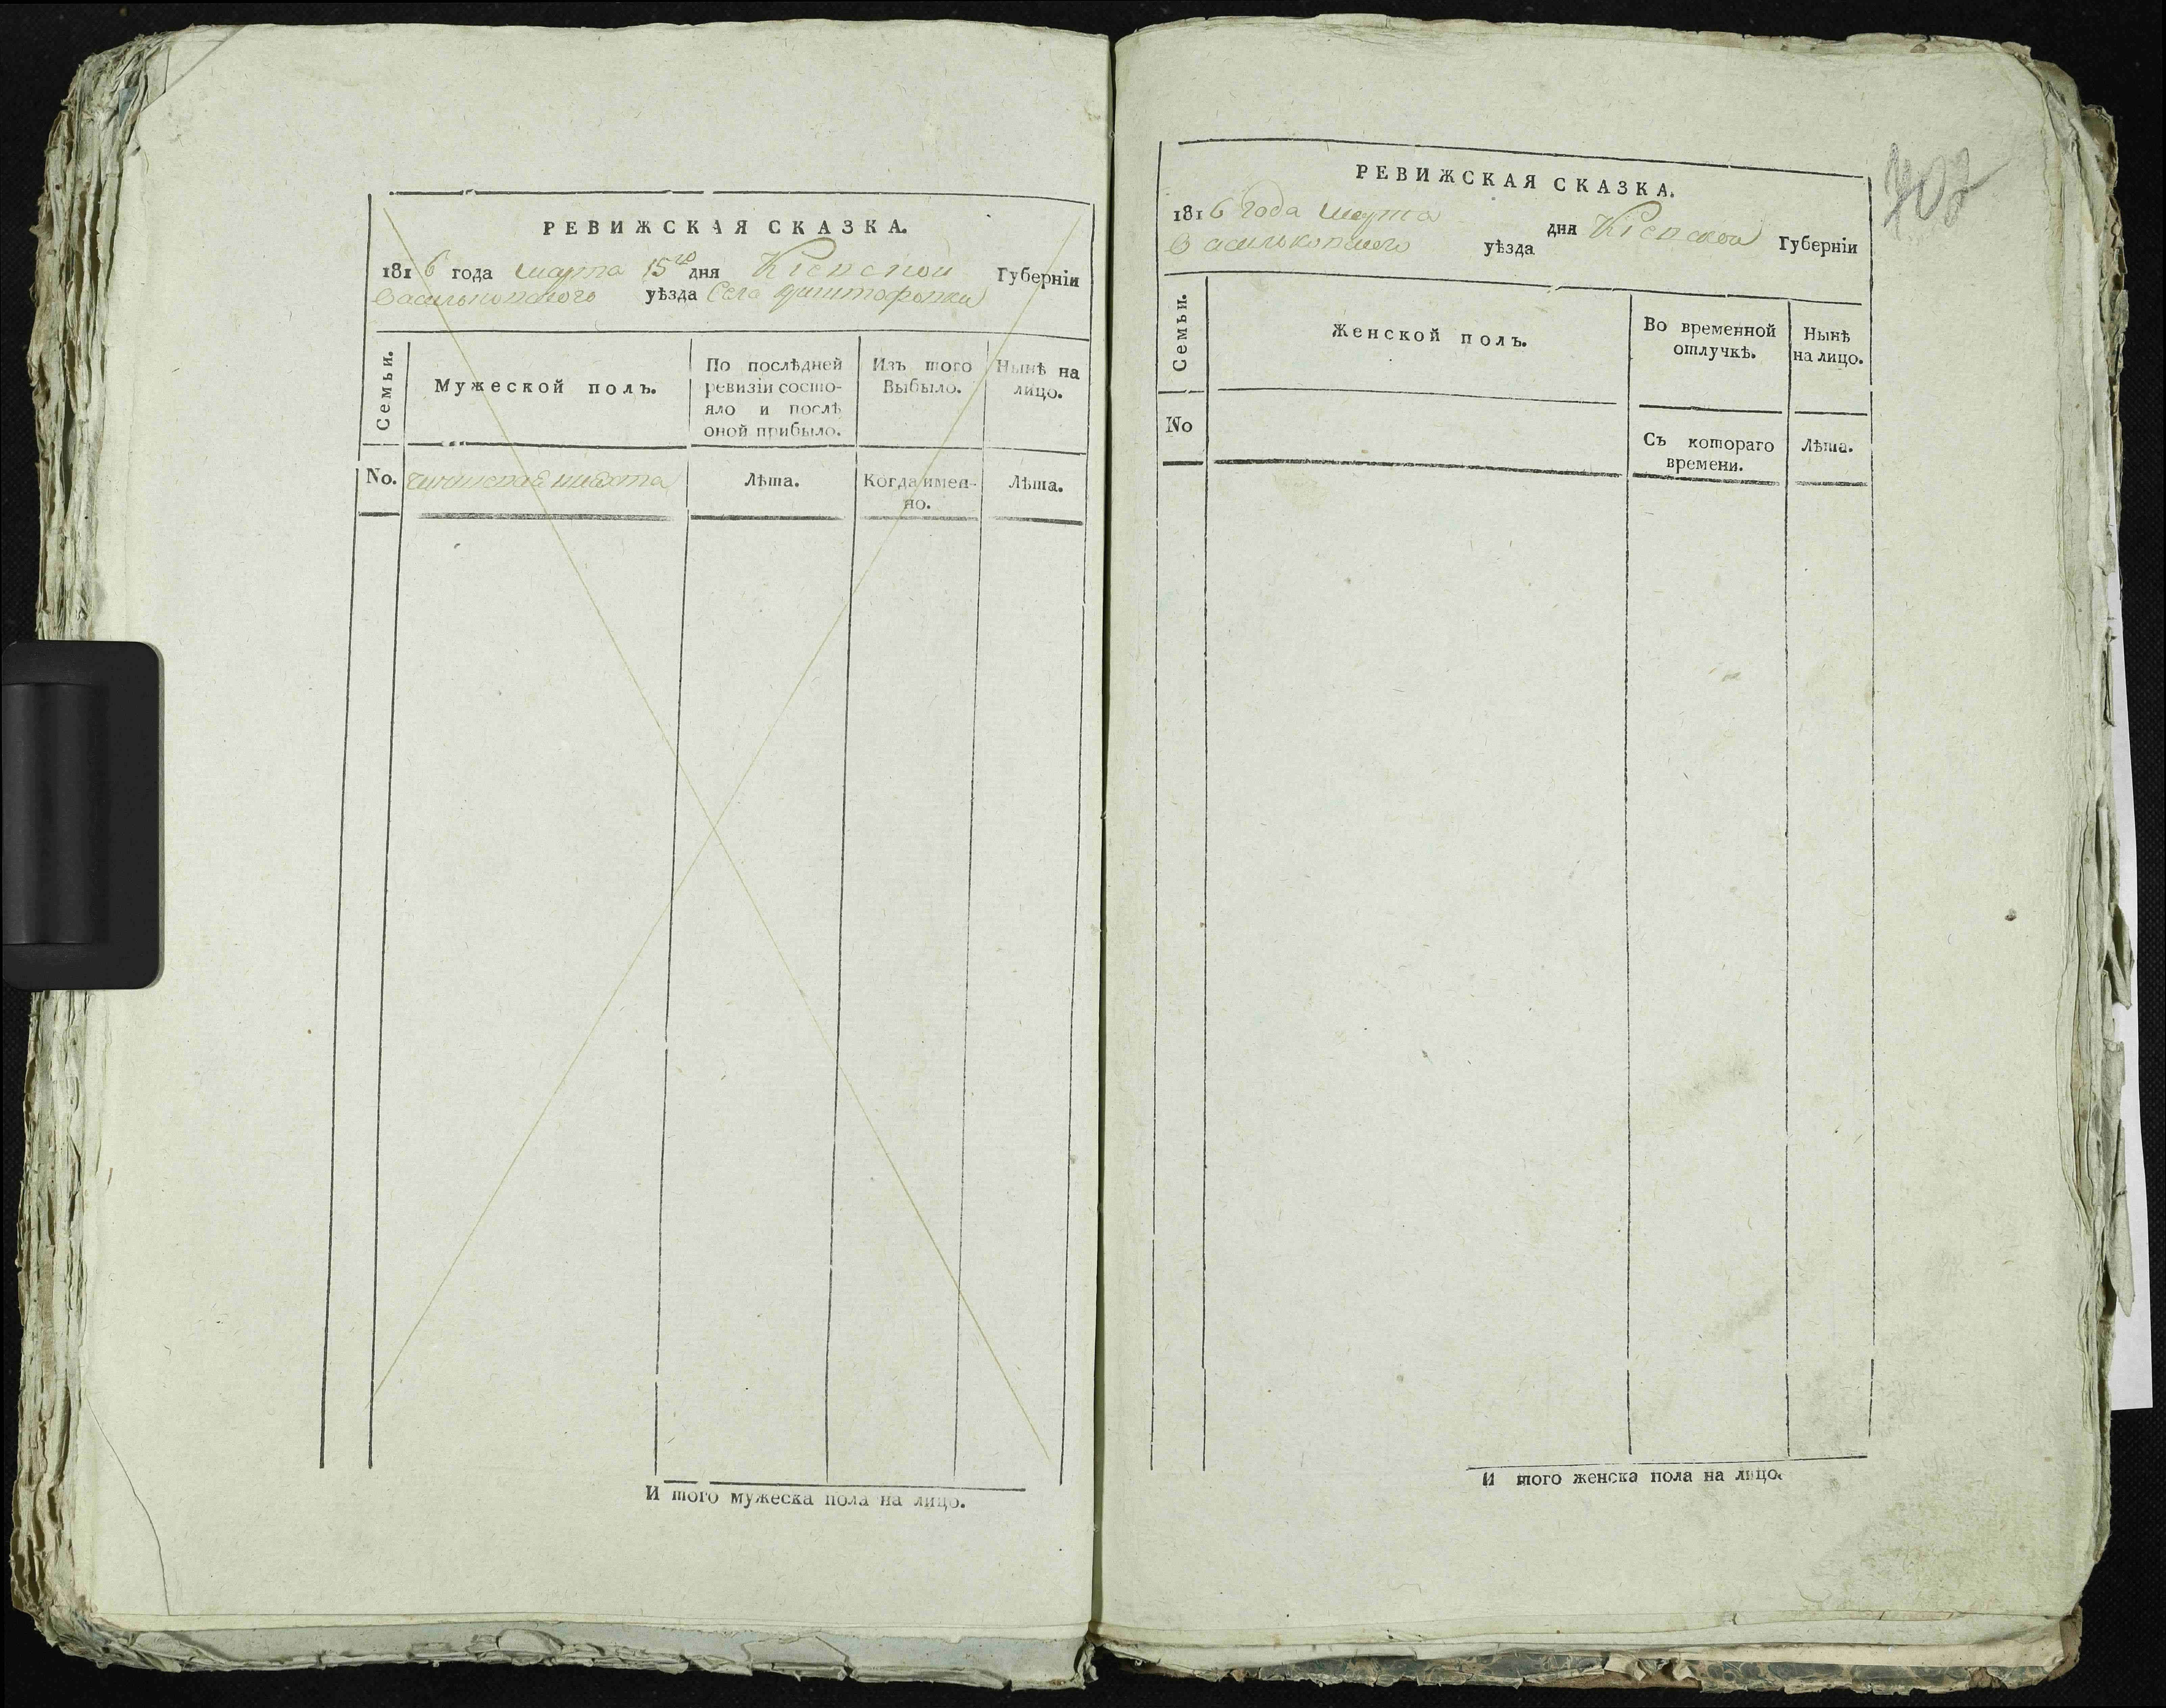 РЕВИЖСКАЯ СКАЗКА.
1816 года марта 15го дня Кіевской Губерніи
Васильковского уѣзда Села
Семьи.
Мужеской полъ.
По послѣдней
ревизіи состо-
яло и послѣ
оной прибыло.
Изъ того
Выбыло.
Нынѣ на
лицо.
No.
Лѣта.
Когда имен-
но.
Лѣта.
И того мужеска пола на лицо.
702
РЕВИЖСКАЯ СКАЗКА.
1816 года марта дня Кіевской Губерніи
Васильковского уѣзда
Семьи.
Женской полъ.
Во временной
отлучкѣ.
Нынѣ
на лицо.
No
Съ котораго
времени.
Лѣта.
И того женска пола на лицо.